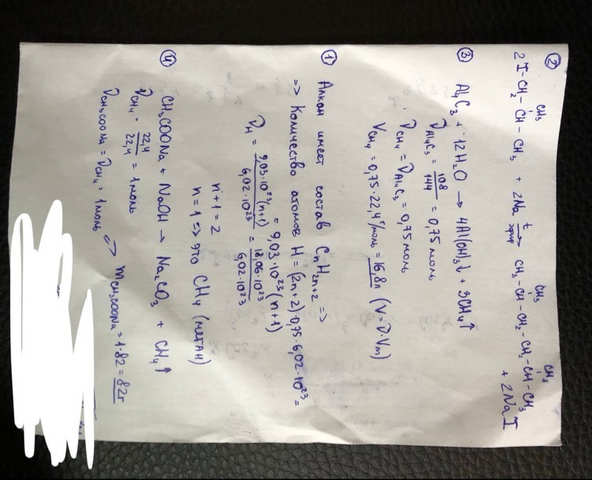 ② 2I-CH₂-CH(CH₃)-CH₃ + 2Na →(t, эфир) CH₃-CH(CH₃)-CH₂-CH₂-CH(CH₃)-CH₃
+ 2NaI
③ Al₄C₃ + 12H₂O → 4Al(OH)₃↓ + 3CH₄↑
ν Al₄C₃ = 108/144 = 0,75 моль
ν CH₄ = ν Al₄C₃ = 0,75 моль
V CH₄ = 0,75·22,4 л/моль = 16,8л (V=ν·Vm)
① Алкан имеет состав CnH2n+2 =>
=> Количество атомов H = (2n+2)·0,75·6,02·10²³ =
= 9,03·10²³(n+1)
ν H = 9,03·10²³(n+1)/6,02·10²³ = 18,06·10²³/6,02·10²³
n+1=2
n=1 => это CH₄ (метан)
④ CH₃COONa + NaOH → Na₂CO₃ + CH₄↑
ν CH₄ = 22,4/22,4 = 1 моль
ν CH₃COONa = ν CH₄ = 1 моль => m CH₃COONa = 1·82 = 82г